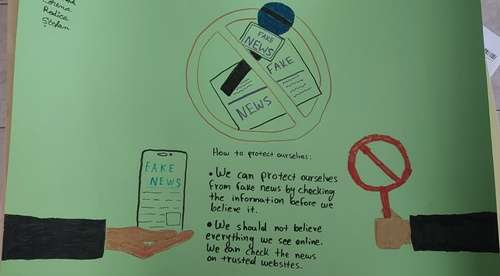 Lorena
Rodica
Ștefan
FAKE
NEWS
FAKE
NEWS
FAKE
NEWS
How to protect ourselves:
• We can protect ourselves
from fake news by checking
the information before we
believe it.
• We should not believe
everything we see online.
We can check the news
on trusted websites.